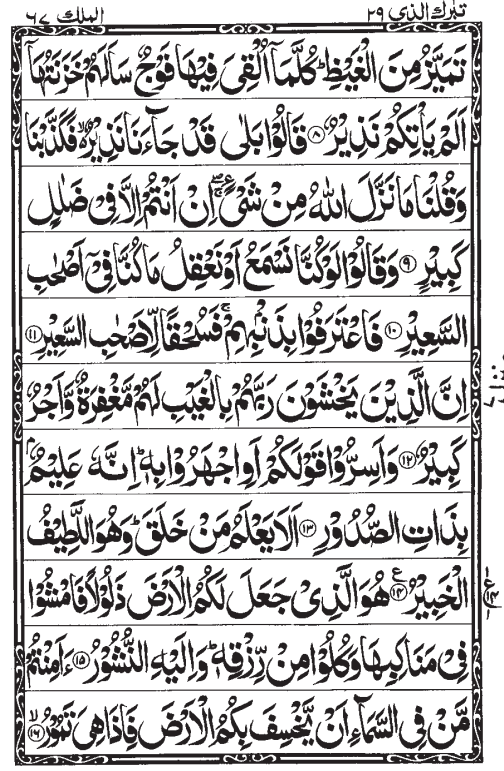 تبٰرك الذي ٢٩
الملك ٦٧
تَمَيَّزُ مِنَ الْغَيْظِ ؕ كُلَّمَاۤ اُلْقِیَ فِيْهَا فَوْجٌ سَاَلَهُمْ خَزَنَتُهَاۤ
اَلَمْ يَاْتِكُمْ نَذِيْرٌ ﴿۸﴾ قَالُوْا بَلٰی قَدْ جَآءَنَا نَذِيْرٌ ۙ فَكَذَّبْنَا
وَقُلْنَا مَا نَزَّلَ اللّٰهُ مِنْ شَیْءٍ ۚۖ اِنْ اَنْتُمْ اِلَّا فِیْ ضَلٰلٍ
كَبِيْرٍ ﴿۹﴾ وَقَالُوْا لَوْ كُنَّا نَسْمَعُ اَوْ نَعْقِلُ مَا كُنَّا فِیْۤ اَصْحٰبِ
السَّعِيْرِ ﴿۱۰﴾ فَاعْتَرَفُوْا بِذَنْۢبِهِمْ ۚ فَسُحْقًا لِّاَصْحٰبِ السَّعِيْرِ ﴿۱۱﴾
اِنَّ الَّذِيْنَ يَخْشَوْنَ رَبَّهُمْ بِالْغَيْبِ لَهُمْ مَّغْفِرَةٌ وَّاَجْرٌ
كَبِيْرٌ ﴿۱۲﴾ وَاَسِرُّوْا قَوْلَكُمْ اَوِ اجْهَرُوْا بِهٖ ؕ اِنَّهٗ عَلِيْمٌۢ
بِذَاتِ الصُّدُوْرِ ﴿۱۳﴾ اَلَا يَعْلَمُ مَنْ خَلَقَ ؕ وَهُوَ اللَّطِيْفُ
الْخَبِيْرُ ﴿۱۴﴾ هُوَ الَّذِیْ جَعَلَ لَكُمُ الْاَرْضَ ذَلُوْلًا فَامْشُوْا
فِیْ مَنَاكِبِهَا وَكُلُوْا مِنْ رِّزْقِهٖ ؕ وَاِلَيْهِ النُّشُوْرُ ﴿۱۵﴾ ءَاَمِنْتُمْ
مَّنْ فِی السَّمَآءِ اَنْ يَّخْسِفَ بِكُمُ الْاَرْضَ فَاِذَا هِیَ تَمُوْرُ ۙ﴿۱۶﴾